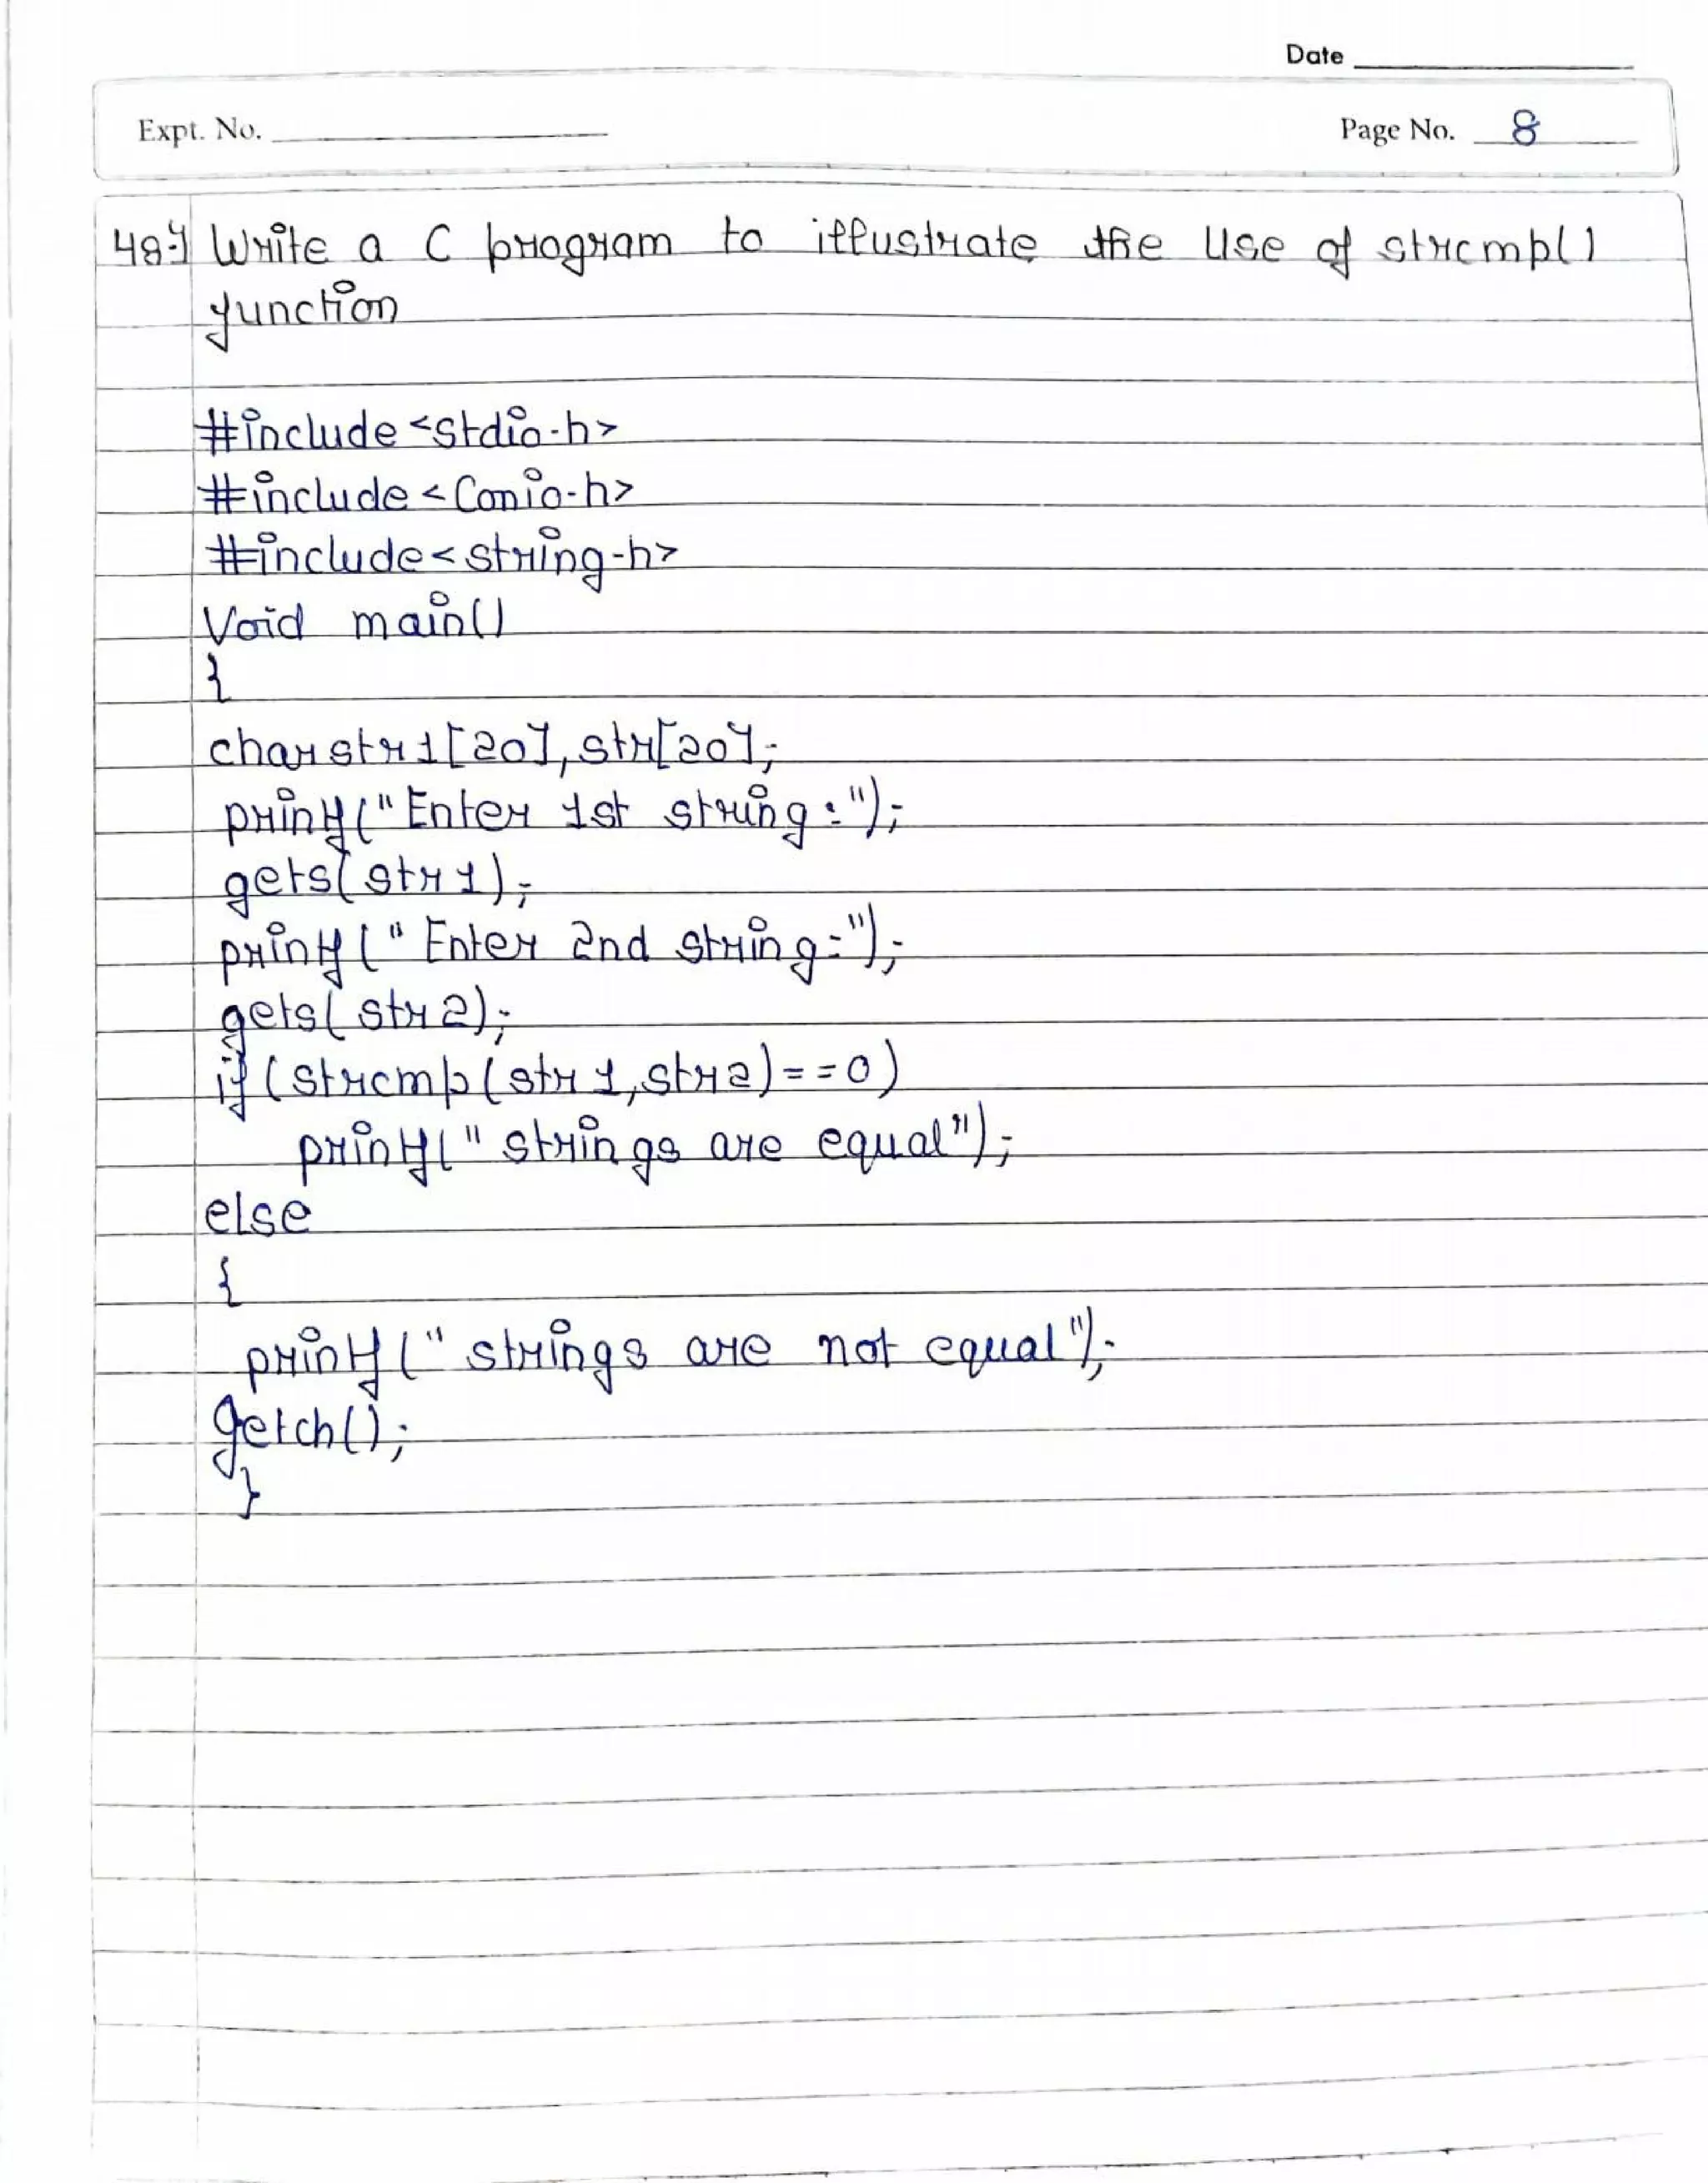 Date
Expt. No.
Page No. 8
48.] Write a C program to illustrate the use of strcmp()
function
#include <stdio.h>
#include <Conio.h>
#include <string.h>
Void main()
{
char str1[20], str[20];
printf("Enter 1st string:");
gets(str1);
printf("Enter 2nd string:");
gets(str2);
if (strcmp(str1,str2)==0)
printf("strings are equal");
else
{
printf("strings are not equal");
getch();
}